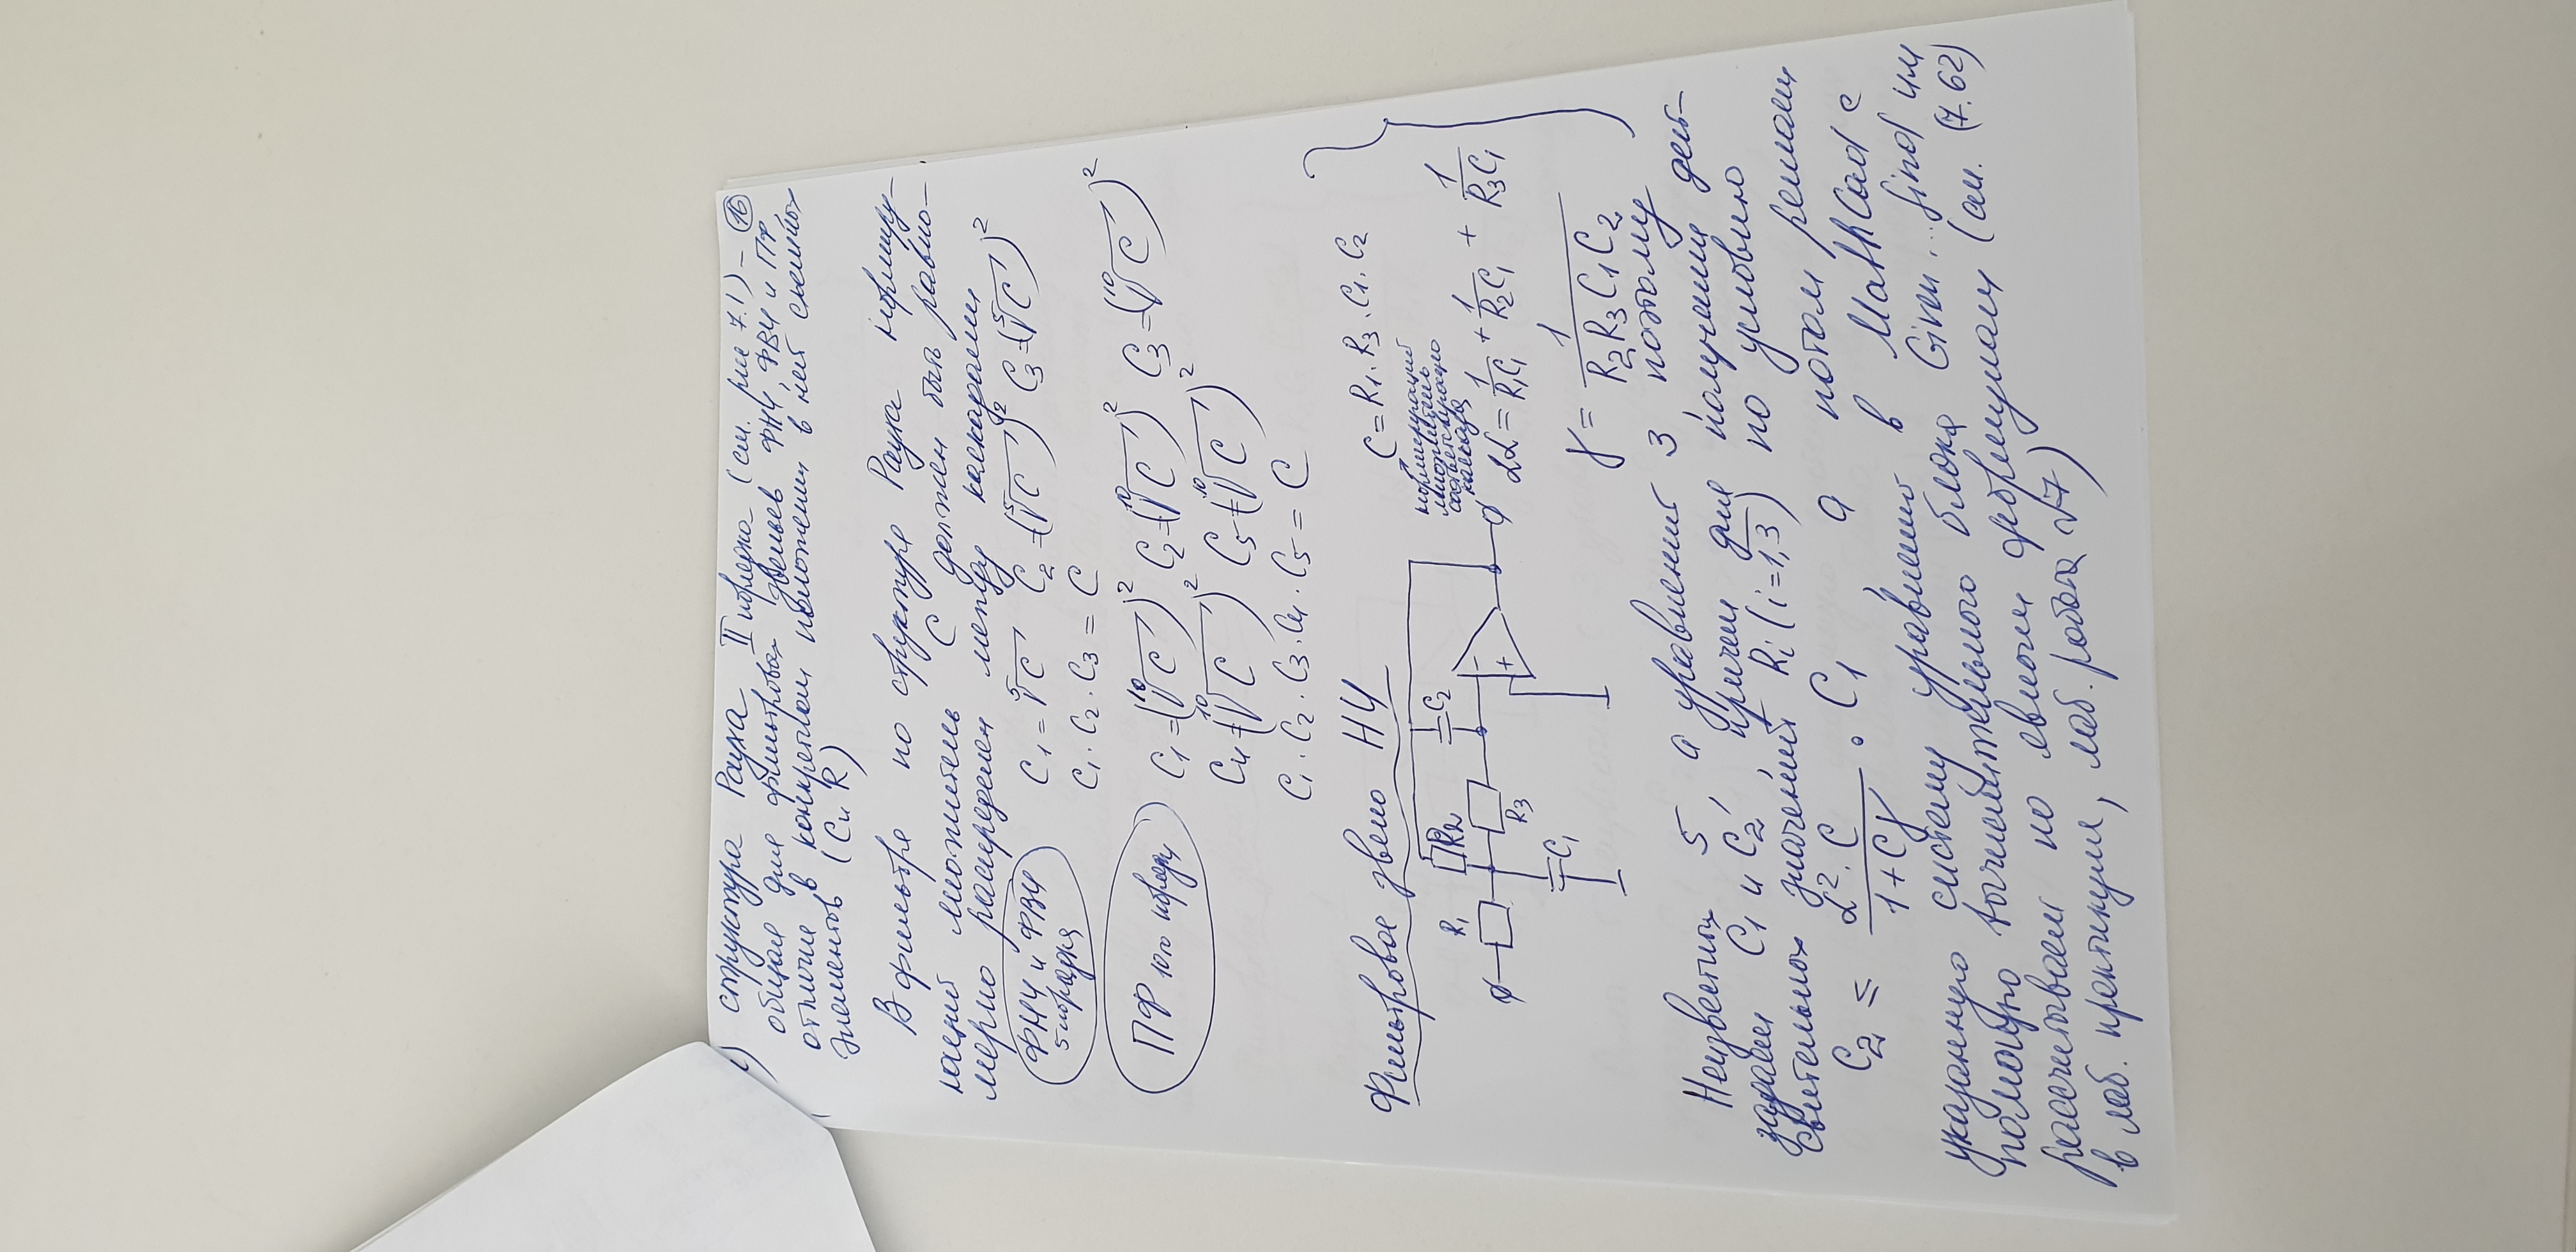 структура Рауха II порядка (см. рис 7.1) – 16
общая для фильтровых звеньев ФНЧ, ФВЧ и ПФ,
отличие в конкретном положении в ней схемных
элементов (C и R)
В фильтре по структуре Рауха нормиру-
ющий множитель C должен быть равно-
мерно распределен между каскадами
ФНЧ и ФВЧ
5 порядка
C₁ = ⁵√C C₂ = (⁵√C)² C₃ = (⁵√C)²
C₁ · C₂ · C₃ = C
ПФ 10го порядка
C₁ = (¹⁰√C)² C₂ = (¹⁰√C)² C₃ = (¹⁰√C)²
C₄ = (¹⁰√C)² C₅ = (¹⁰√C)²
C₁ · C₂ · C₃ · C₄ · C₅ = C
Фильтровое звено НЧ
C = R₁ · R₃ · C₁ · C₂
нормирующий
множитель
соответствующего
каскада
R₁ R2 C₂
R₃
C₁
− +
2α = 1/R₁C₁ + 1/R₂C₁ + 1/R₃C₁
γ = 1/R₂R₃C₁C₂
Неизвестных 5, а уравнений 3, поэтому
задаем C₁ и C₂, причем для получения дейт-
свительных значений Ri (i=1,3) по условию
C₂ ≤ α²·C/1+Cγ · C₁, а потом решаем
указанную систему уравнений в MathCad с
помощью вычислительного блока Given...find или
рассчитываем по явным формулам (см. (7.62)
в лаб. практикуме, лаб. работа №7)